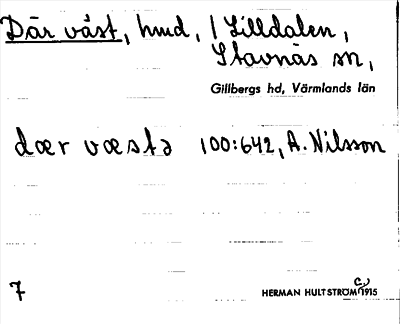 Där väst, hmd, i Lilldalen,
Stavnäs sn,
Gillbergs hd, Värmlands län
dær væstə 100:642, A. Nilsson
7
HERMAN HULTSTRÖM c. 1915